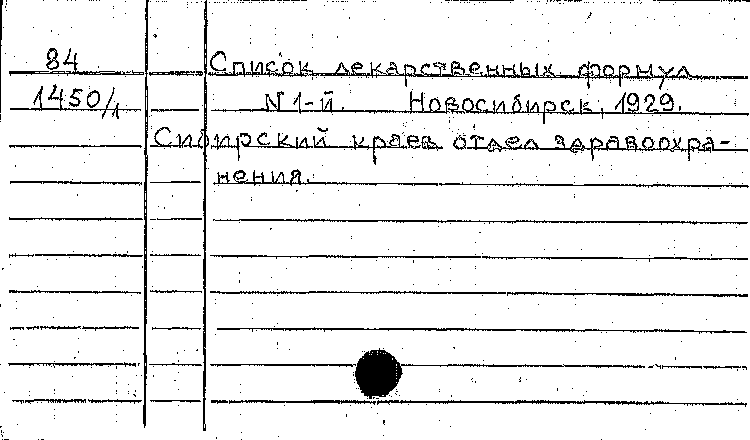 84 Список лекарственных формул
1450/1 N 1-й. Новосибирск, 1929.
Сибирский краев отдел здравоохра-
нения.